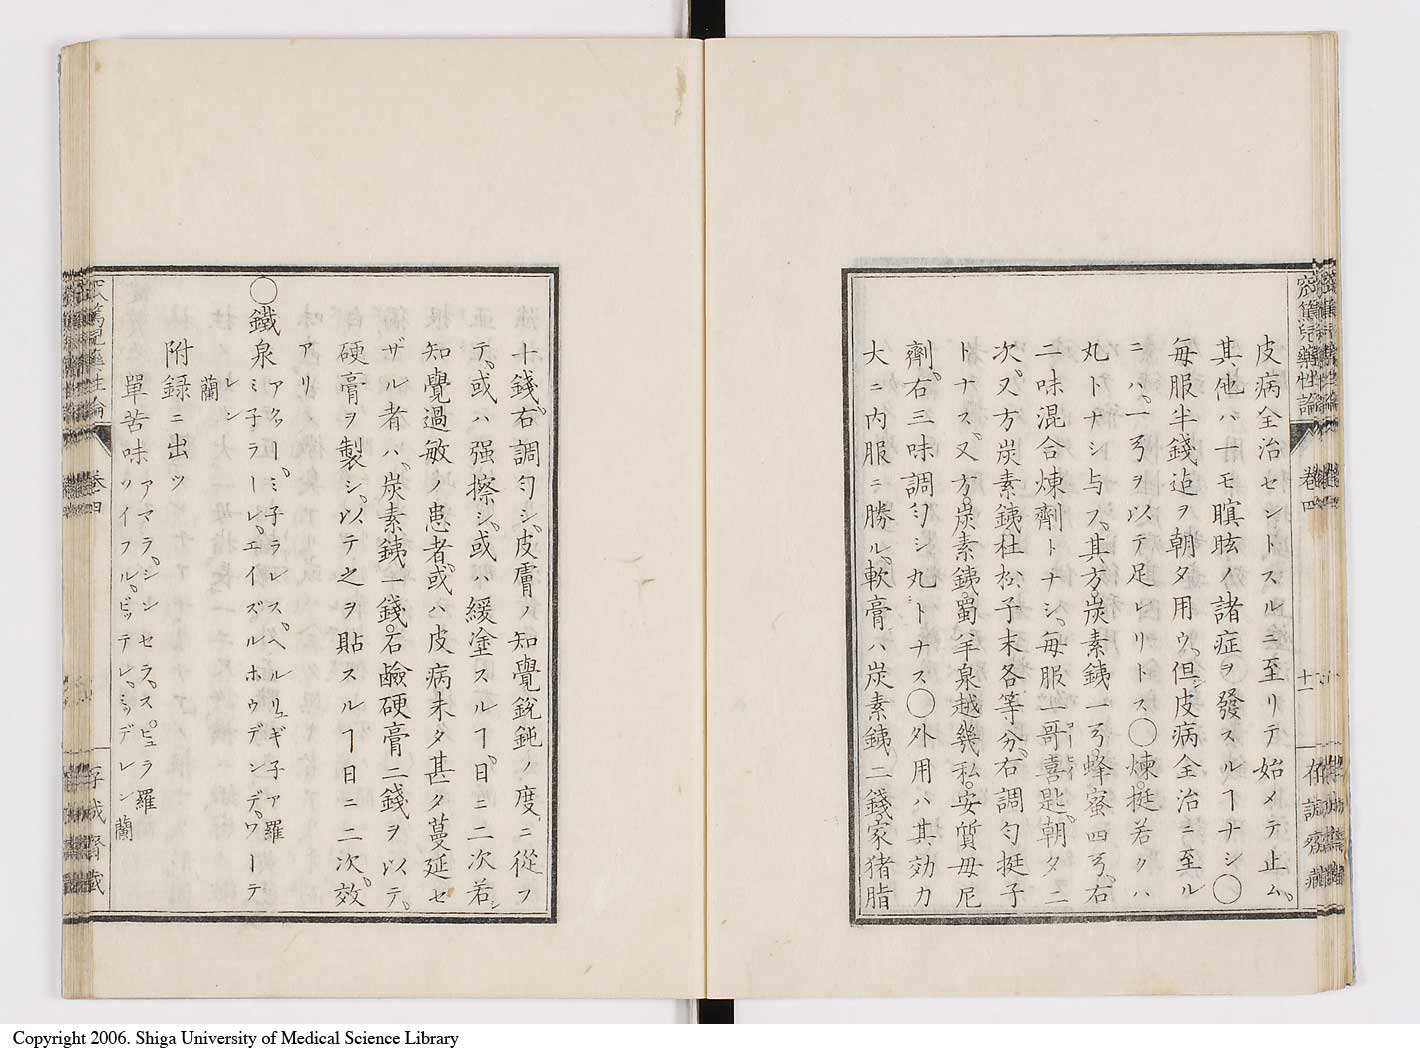 皮病全治セントスルニ至リテ始メテ止ム。
其他ハ一モ瞑眩ノ諸症ヲ發スルヿナシ〇
毎服半錢迨ヲ朝夕用ウ、但シ皮病全治ニ至ル
ニハ、一弓ヲ以テ足レリトス〇煉挺若クハ
丸トナシ与フ、其方。炭素銕一弓。蜂蜜四弓、右
二味混合煉劑トナシ、毎服一哥喜匙、朝夕ニ
次、又方炭素銕杜松子末各等分、右調勻挺子
トナス、又方。炭素銕。蜀羊泉越幾私。安質母尼
劑。右三味調勻シ丸トナス〇外用ハ其効力
大ニ内服ニ勝ル、軟膏ハ炭素銕二錢家猪脂
卷四
十一
十錢、右調勻シ、皮膚ノ知覺銳鈍ノ度ニ從フ
テ、或ハ强擦シ、或ハ緩塗スルヿ、日ニ二次若シ
知覺過敏ノ患者、或ハ皮病未タ甚タ蔓延セ
ザル者ハ、炭素銕一錢。石鹼硬膏二錢ヲ以テ、
硬膏ヲ製シ、以テ之ヲ貼スルヿ日ニ二次效
アリ
〇鐵泉 アクワー、ミ子ラレス、ヘルリュギ子ア 羅
ミ子ラーレ、エイズルホウデンデ、ワーテ
レン 蘭
附録ニ出ツ
單苦味 アマラ、シンセラ、スピュラ 羅
ソイフル、ビッテレ、ミッデレン 蘭
卷四